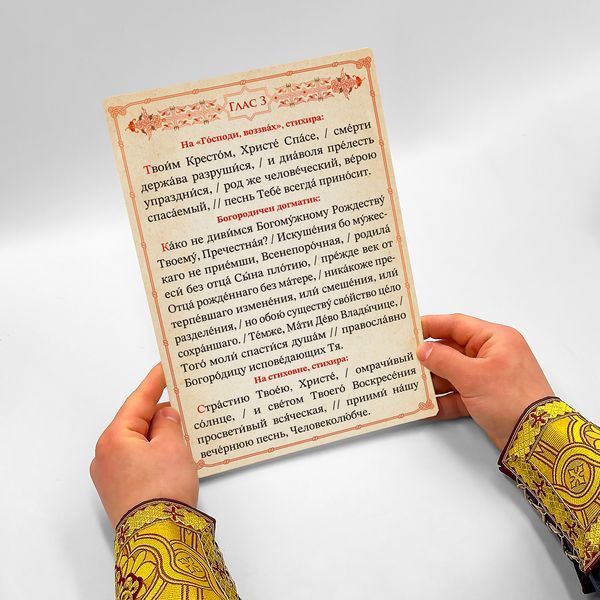 Глас 3
На «Го́споди, воззва́х», стихира:
Твои́м Кресто́м, Христе́ Спа́се, / сме́рти
держа́ва разруши́ся, / и диа́вола пре́лесть
упраздни́ся, / род же челове́ческий, ве́рою
спаса́емый, // песнь Тебе́ всегда́ прино́сит.
Богородичен догматик:
Ка́ко не диви́мся Богому́жному Рождеству́
Твоему́, Пречестна́я? / Искуше́ния бо му́жес-
каго не прие́мши, Всенепоро́чная, / родила́
еси́ без отца́ Сы́на пло́тию, / пре́жде век от
Отца́ рожде́ннаго без ма́тере, / ника́коже пре-
терпе́вшаго измене́ния, или́ смеше́ния, или́
разделе́ния, / но обою́ существу́ сво́йство це́ло
сохра́ншаго. / Те́мже, Ма́ти Де́во Влады́чице, /
Того́ моли́ спасти́ся душа́м // правосла́вно
Богоро́дицу испове́дающих Тя.
На стиховне, стихира:
Стра́стию Твое́ю, Христе́, / омрачи́вый
со́лнце, / и све́том Твоего́ Воскресе́ния
просвети́вый вся́ческая, // приими́ на́шу
вече́рнюю песнь, Человеколю́бче.